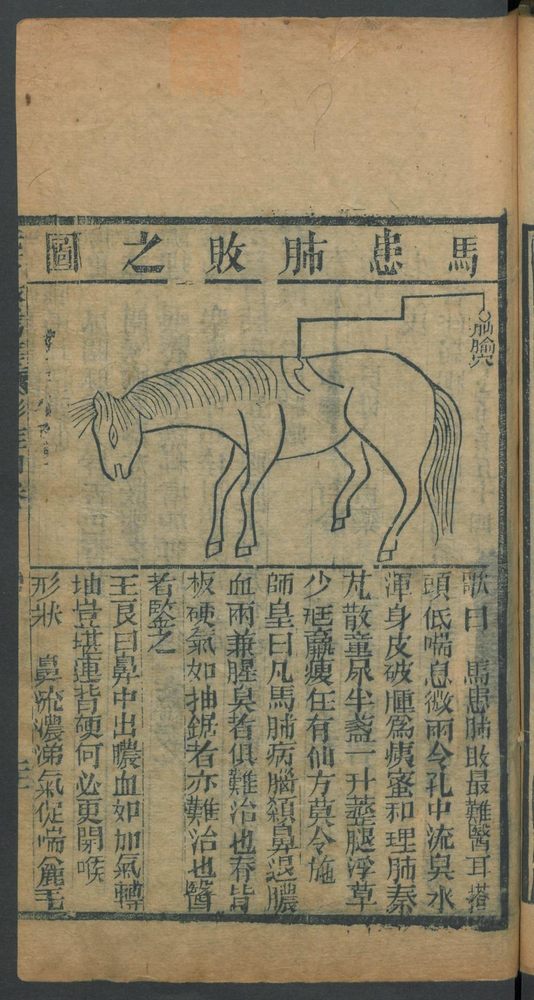 馬患肺敗之圖
肺腧穴
歌曰　馬患肺敗最難醫耳搭
頭低喘息微兩 孔中流臭水
渾身皮破腫爲痍蜜和理肺秦
芃散童尿半盞一升虀腿浮草
少 羸瘦任有仙方莫令施
師皇曰凡馬肺病腦顙鼻 膿
血兩兼腥臭者俱難治也脊背
板硬氣如抽鋸者亦難治也醫
者鑒之
王良曰鼻中出膿血如加氣轉
 豈堪連背硬何必更開喉
形狀　鼻流濃涕氣促喘麄毛